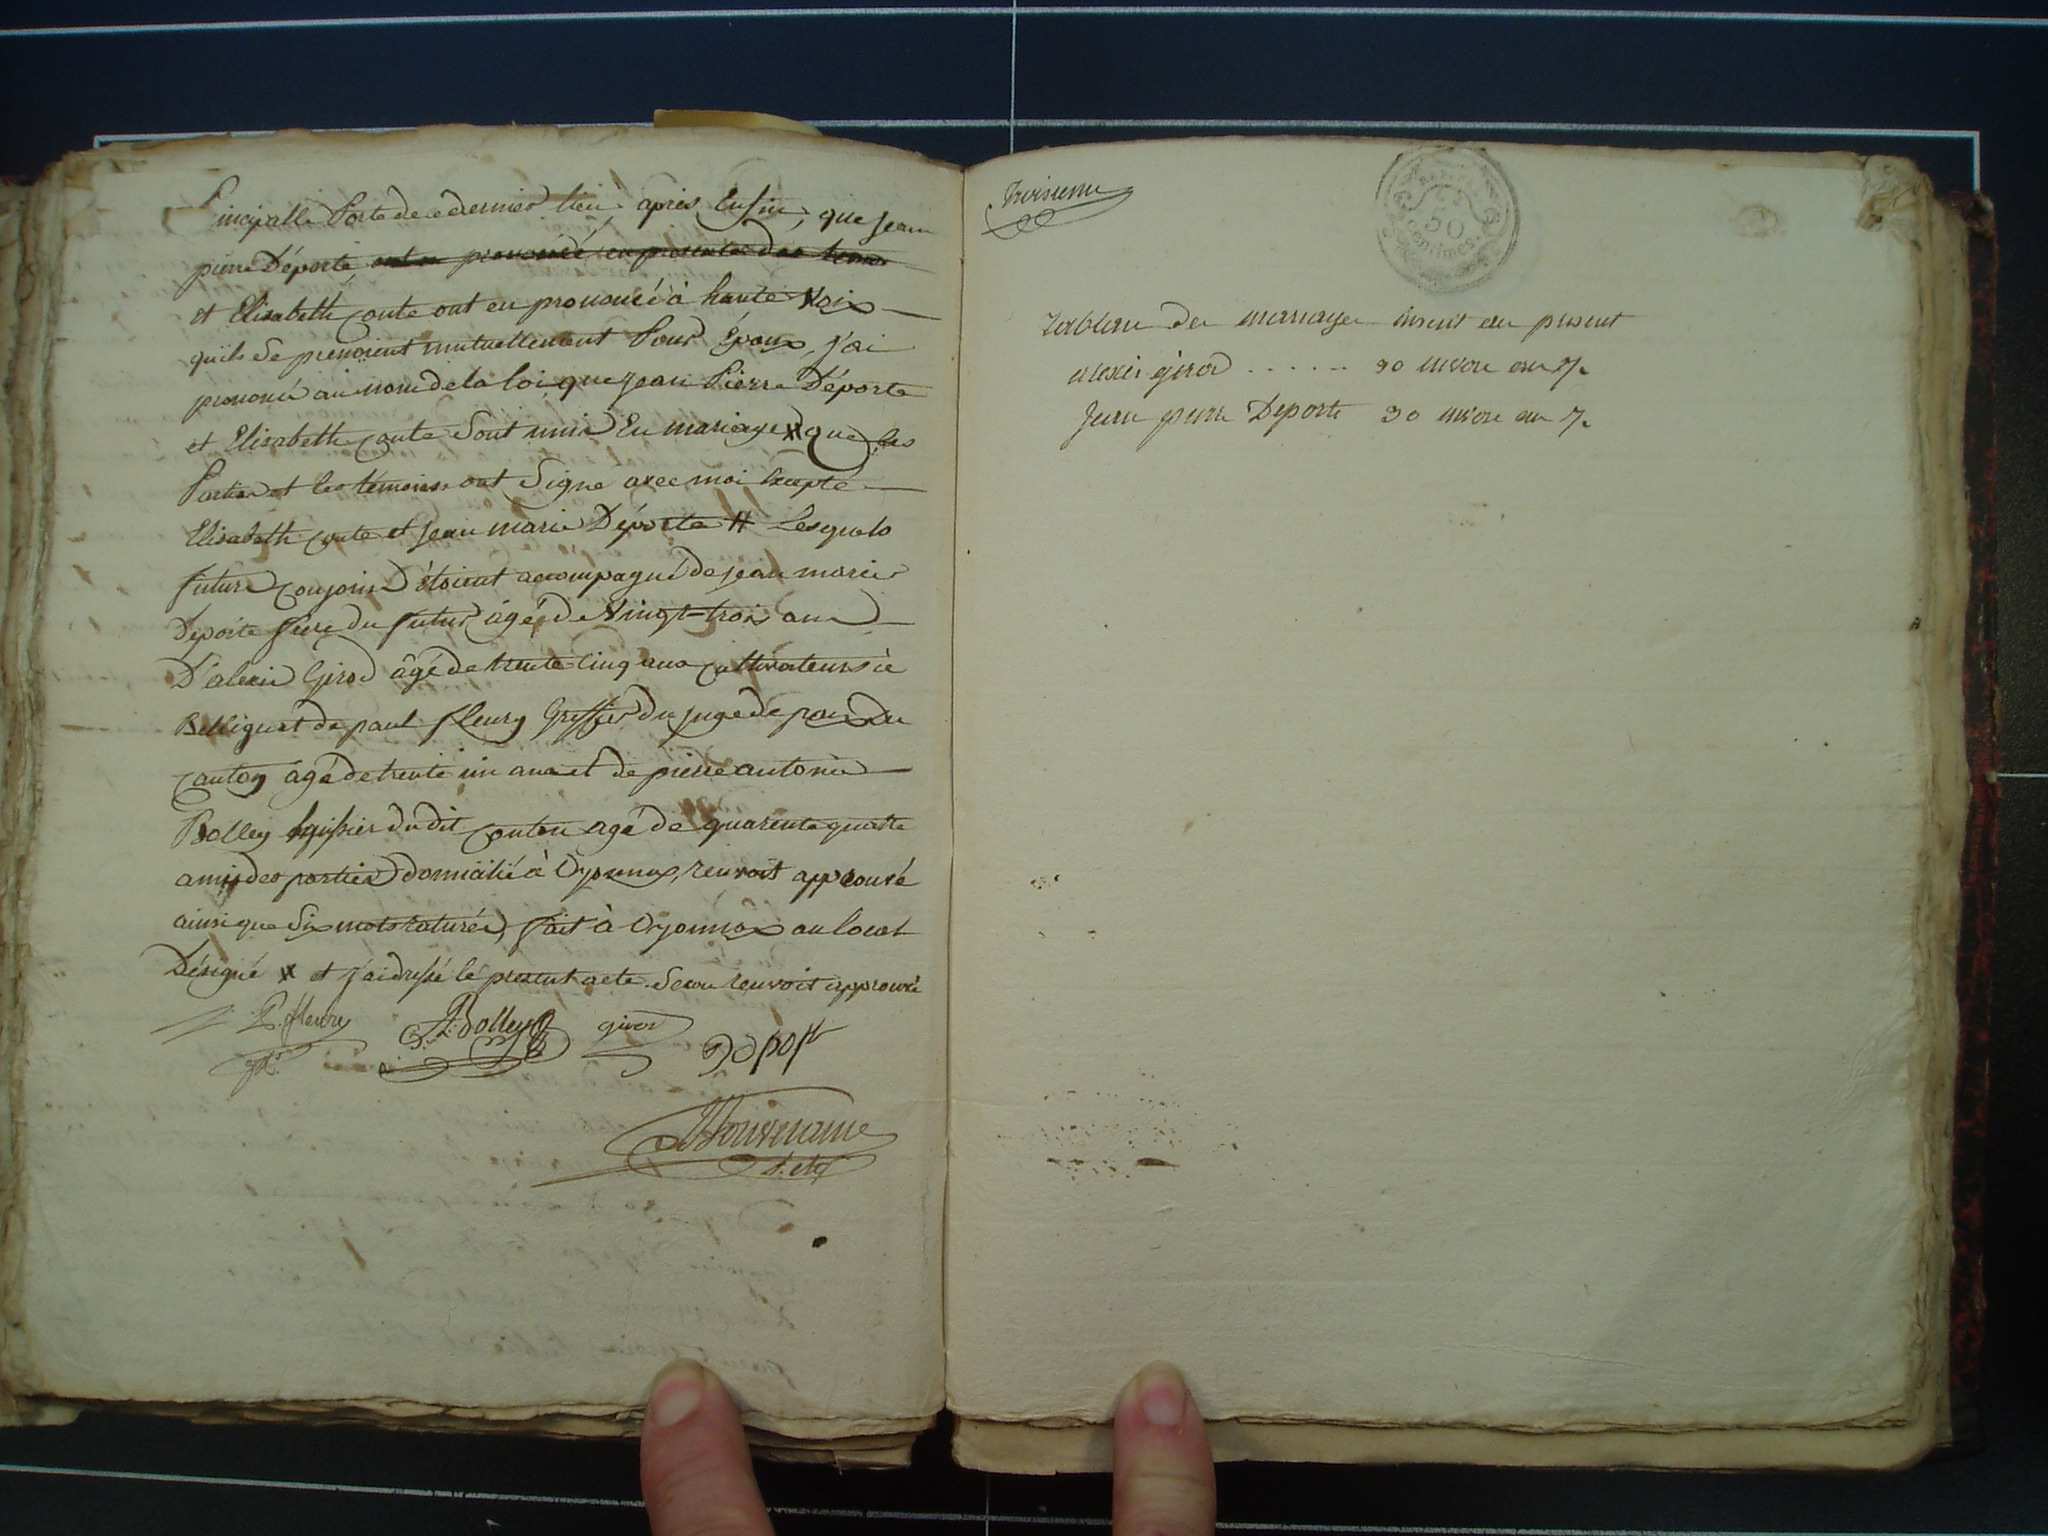 Principalle Porte de ce dernier lieu, après Enfin, que Jean
pierre Déporte ont en prononcé en presence des temoins
et Elisabeth Conte ont en prononcé à haute Voix
quils Se prenoient mutuellement Pour Époux, j'ai
prononcé au nom de la loi que jean Pierre Déporte
et Elisabeth Conte Sont unis En mariage # que les
Parties et les témoins ont Signé avec moi Excepté
Elisabeth Conte et Jean Marie Déporte # Lesquels
futurs Conjoins étoient accompagné de jean marie
Déporte frere du futur âgé de Vingt=trois ans
D'alexis Girod âgé de trente Cinq ans Cultivateurs à
Belligna et de paul fleury Greffier du juge de paix du
Canton âgé de trente un ans et de pierre antoine
Bolley huissier du dit Canton agé de quarente quatre
amis des parties domicilié à Oyonnax, renvoit approuvé
ainsi que Six mots raturés, fait à Oyonnax au local
Désigné # et j'ai dressé le present acte. Second renvoit approuvé
P. fleury
Bolley
girod
Deport
troisieme
50
centimes
tableau des mariages inscrit au present
alexis girod . . . . . . 30 nivose an 7.
Jean pierre Deporte 30 nivose an 7.